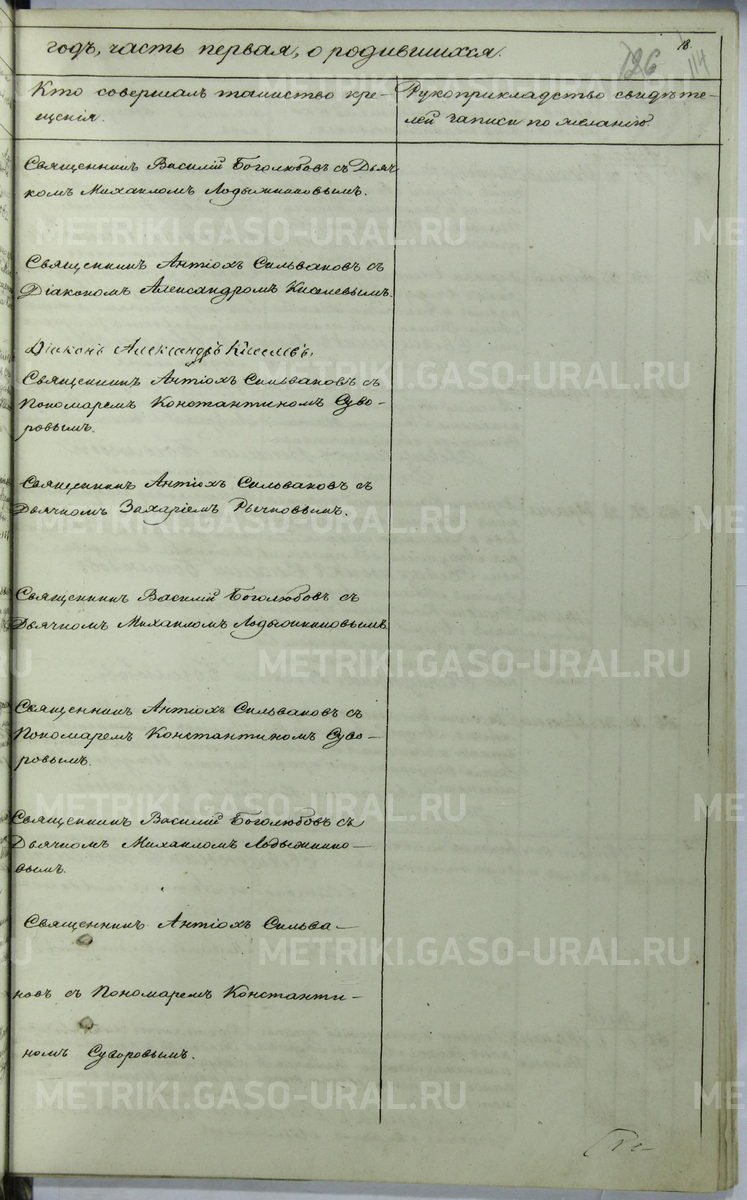 годъ, часть первая, о родившихся.
18.
126
114
Кто совершалъ таинство кре-
щенія.
Рукоприкладство свидѣте-
лей записи по желанію.
Священникъ Василій Боголюбовъ съ Дьяч
комъ Михаиломъ Лодыжниковымъ.
Священникъ Антіохъ Сильвановъ съ
Діакономъ Александромъ Киселевымъ.
Діаконъ Александръ Киселевъ,
Священникъ Антіохъ Сильвановъ съ
Пономаремъ Константиномъ Суво-
ровымъ.
Священникъ Антіохъ Сильвановъ съ
Дьячкомъ Захаріемъ Рычковымъ.
Священникъ Василій Боголюбовъ съ
Дьячкомъ Михаиломъ Лодыжниковымъ
Священникъ Антіохъ Сильвановъ съ
Пономаремъ Константиномъ Суво-
ровымъ.
Священникъ Василій Боголюбовъ съ
Дьячкомъ Михаиломъ Лодыжнико-
вымъ.
Священникъ Антіохъ Сильва-
новъ съ Пономаремъ Константи-
номъ Суворовымъ.
METRIKI.GASO-URAL.RU